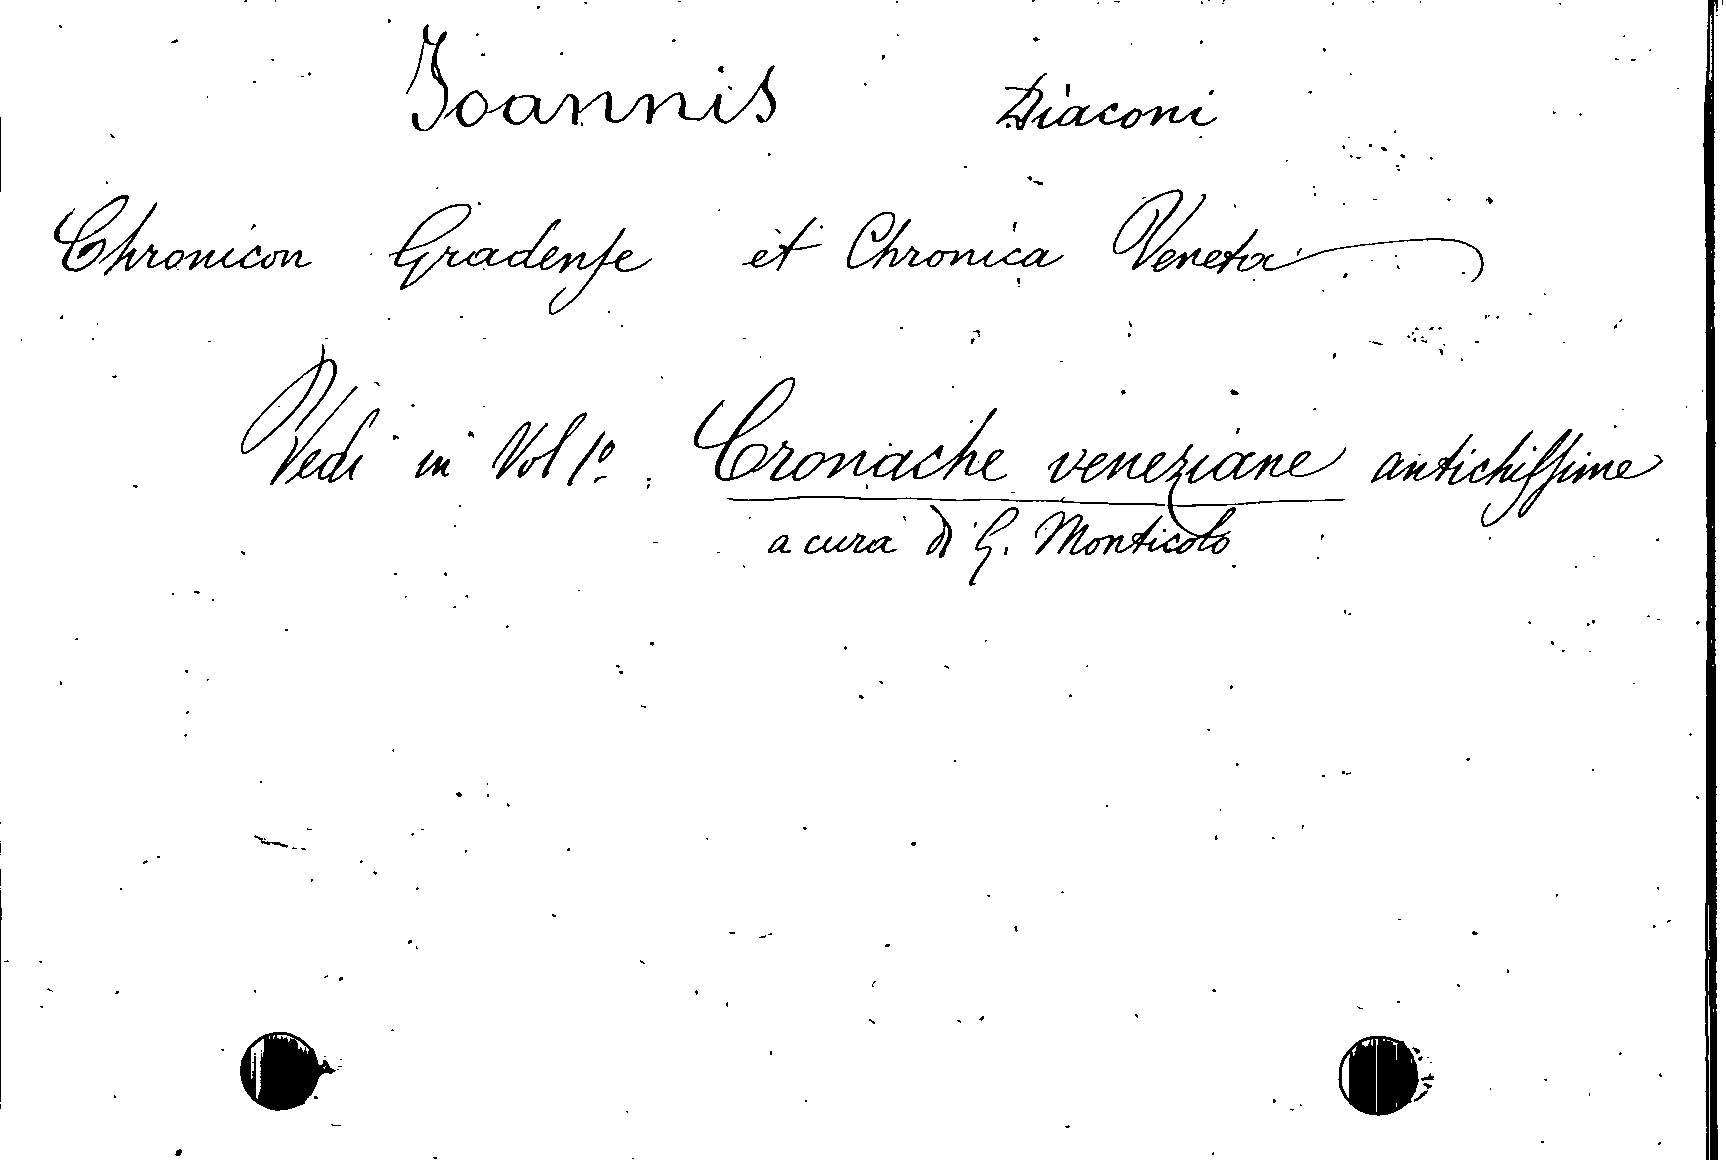 Joannis Diaconi
Chronicon Gradenſe et Chronica Veneta
Vedi in Vol 1º. Cronache veneziane antichiſſime
a cura di G. Monticolo